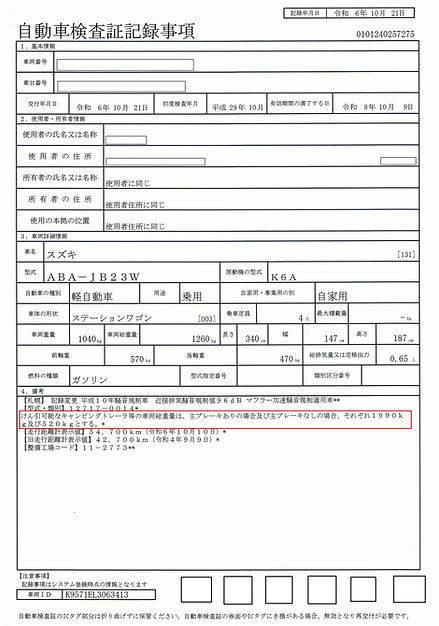 記録年月日 令和 6年 10月 21日
自動車検査証記録事項
0101240257275
1. 基本情報
車両番号
車台番号
交付年月日 令和 6年 10月 21日 初度検査年月 平成 29年 10月 有効期間の満了する日 令和 8年 10月 9日
2. 使用者・所有者情報
使用者の氏名又は名称
使用者の住所
所有者の氏名又は名称 使用者に同じ
所有者の住所 使用者住所に同じ
使用の本拠の位置 使用者住所に同じ
3. 車両詳細情報
車名 スズキ [131]
型式 ABA-JB23W 原動機の型式 K6A
自動車の種別 軽自動車 用途 乗用 自家用・事業用の別 自家用
車体の形状 ステーションワゴン [003] 乗車定員 4人 最大積載量 -kg
車両重量 1040kg 車両総重量 1260kg 長さ 340cm 幅 147cm 高さ 187cm
前軸重 570kg 後軸重 470kg 総排気量又は定格出力 0.65 L
燃料の種類 ガソリン 型式指定番号 類別区分番号
4. 備考
【札幌】 記録変更 平成10年騒音規制車 近接排気騒音規制値96dB マフラー加速騒音規制適用車**
【型式・類別】12717-0014*
けん引可能なキャンピングトレーラ等の車両総重量は、主ブレーキありの場合及び主ブレーキなしの場合、それぞれ1990k
g及び520kgとする。*
【走行距離計表示値】54,700km（令和6年10月10日）*
【旧走行距離計表示値】42,700km（令和4年9月9日）*
【整備工場コード】11-2773**
【注意事項】
記録事項はシステム登録時点の情報となります
車両ID K9571EL3063413
自動車検査証のICタグ部分は折り曲げずに保管ください。自動車検査証の券面やICタグにき損がある場合、無効となり再交付が必要です。